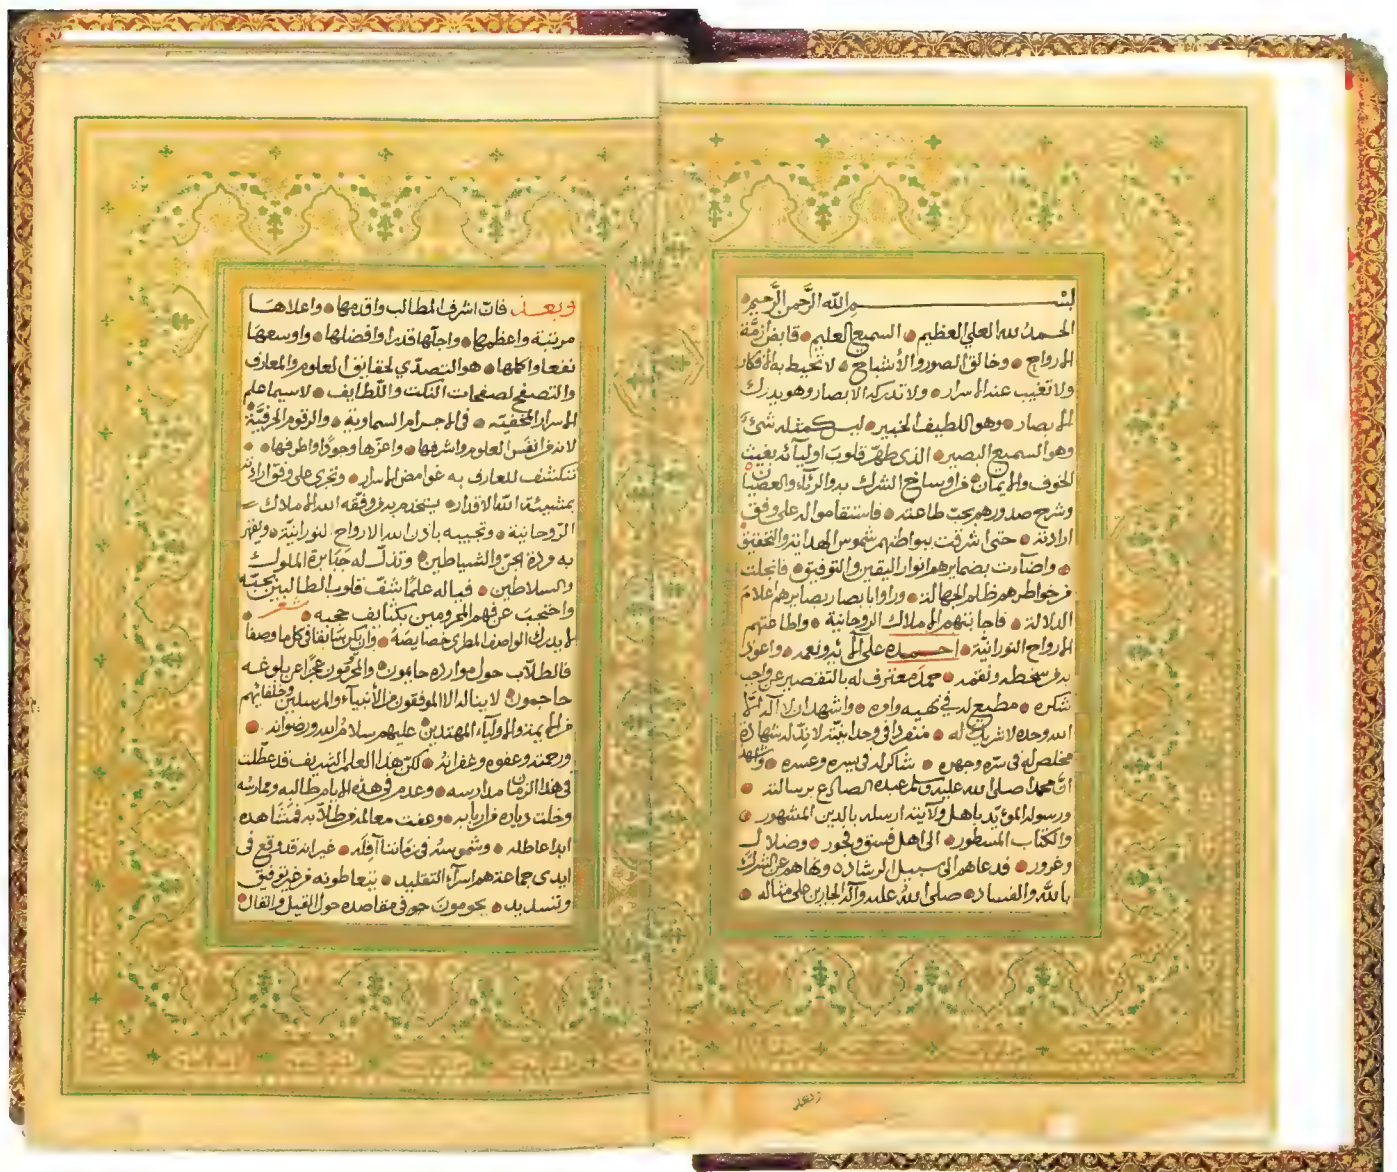 بسم الله الرحمن الرحيم
الحمد لله العلي العظيم السميع العليم قابض ازمّة
الارواح وخالق الصور والأشباح لا تحيط به الافكار
ولا تغيب عنه الاسرار ولا تدركه الابصار وهو يدرك
الابصار وهو اللطيف الخبير ليس كمثله شئ
وهو السميع البصير الذى طهّر قلوب اوليآئه بغيث
الخوف والايمان من اوساخ الشرك والريآء والعصيان
وشرح صدورهم بحبّ طاعته فاستقاموا له على وفق
ارادته حتى اشرقت ببواطنهم شموس الهداية والتحقيق
واضآءت بضمايرهم انوار اليقين والتوفيق فانجلت
من خواطرهم ظلم الجهالة وراوا بابصار بصايرهم اعلام
الدلالة فاجابتهم الاملاك الروحانية واطاعتهم
الارواح النورانيّة احمده على آلآئه ونعمه واعوذ
به من سخطه ونقمه حمد معترف له بالتقصير عن واجب
شكره مطيع له فى نهيه وامره واشهد ان لا اله الا
الله وحده لا شريك له منفردا فى وحدانيّته لا ندّ له شهادة
مخلص له فى سرّه وجهره شاكر له فى يسره وعسره واشهد
انّ محمدا صلى الله عليه وسلم عبده الصادع برسالته
ورسوله المؤيّد باهل ولايته ارسله بالدين المشهور
والكتاب المسطور الى اهل فسق وفجور وضلال
وغرور فدعاهم الى سبيل الرشاد ونهاهم عن الشرك
بالله والفساد صلى الله عليه وآله الجارين على مثاله
وبعد
وبعد فانّ اشرف المطالب واقدمها واعلاها
مرتبة واعظمها واجلّها قدرا وافضلها واوسعها
نفعا واكملها هو التصدّي لحقائق العلوم والمعارف
والتصفح لصفحات النكت واللطايف لا سيما علم
الاسرار المخفيّة فى الاجرام السماوية والرقوم الحرفيّة
لانه من انفس العلوم واشرفها واعزّها وجودًا واطرفها
تنكشف للعارف به غوامض الاسرار وتجرى على وفق ارادته
بمشيئة الله الاقدار يستخدم به من وفّقه الله الاملاك
الروحانية وتجيبه باذن الله الارواح النورانيّة ويقهر
به مردة الجنّ والشياطين وتذلّ له جبابرة الملوك
والسلاطين فياله علمًا شفّ قلوب الطالبين بحبّه
واحتجب عن فهم المحرومين بكثايف حجبه شعر
لا يدرك الواصف المطرى خصايصه وان يك سابقا فى كل ما وصفا
فالطلاب حول موارده حايمون والمحرومون عجزا عن بلوغه
جاحمون لا يناله الا الموفقون من الأنبيآء والمرسلين وخلفائهم
من الايمة والاوليآء المهتدين عليهم سلام الله ورضوانه
ورحمته وعفوه وغفرانه لكن هذا العلم الشريف قد عطّلت
فى هذا الزمان مدارسه وعدم فى هذه الايام طالبه وممارسه
وخلت دياره من اربابه وعفت معالمه من طلابه فمشاهده
ابدا عاطله وشموسه فى زماننا آفله غير انه قد وقع فى
ايدى جماعة هم اسرآء التقليد يتعاطونه من غير توفيق
وتسديد يحومون حوفى مقاصده حول القيل والقال